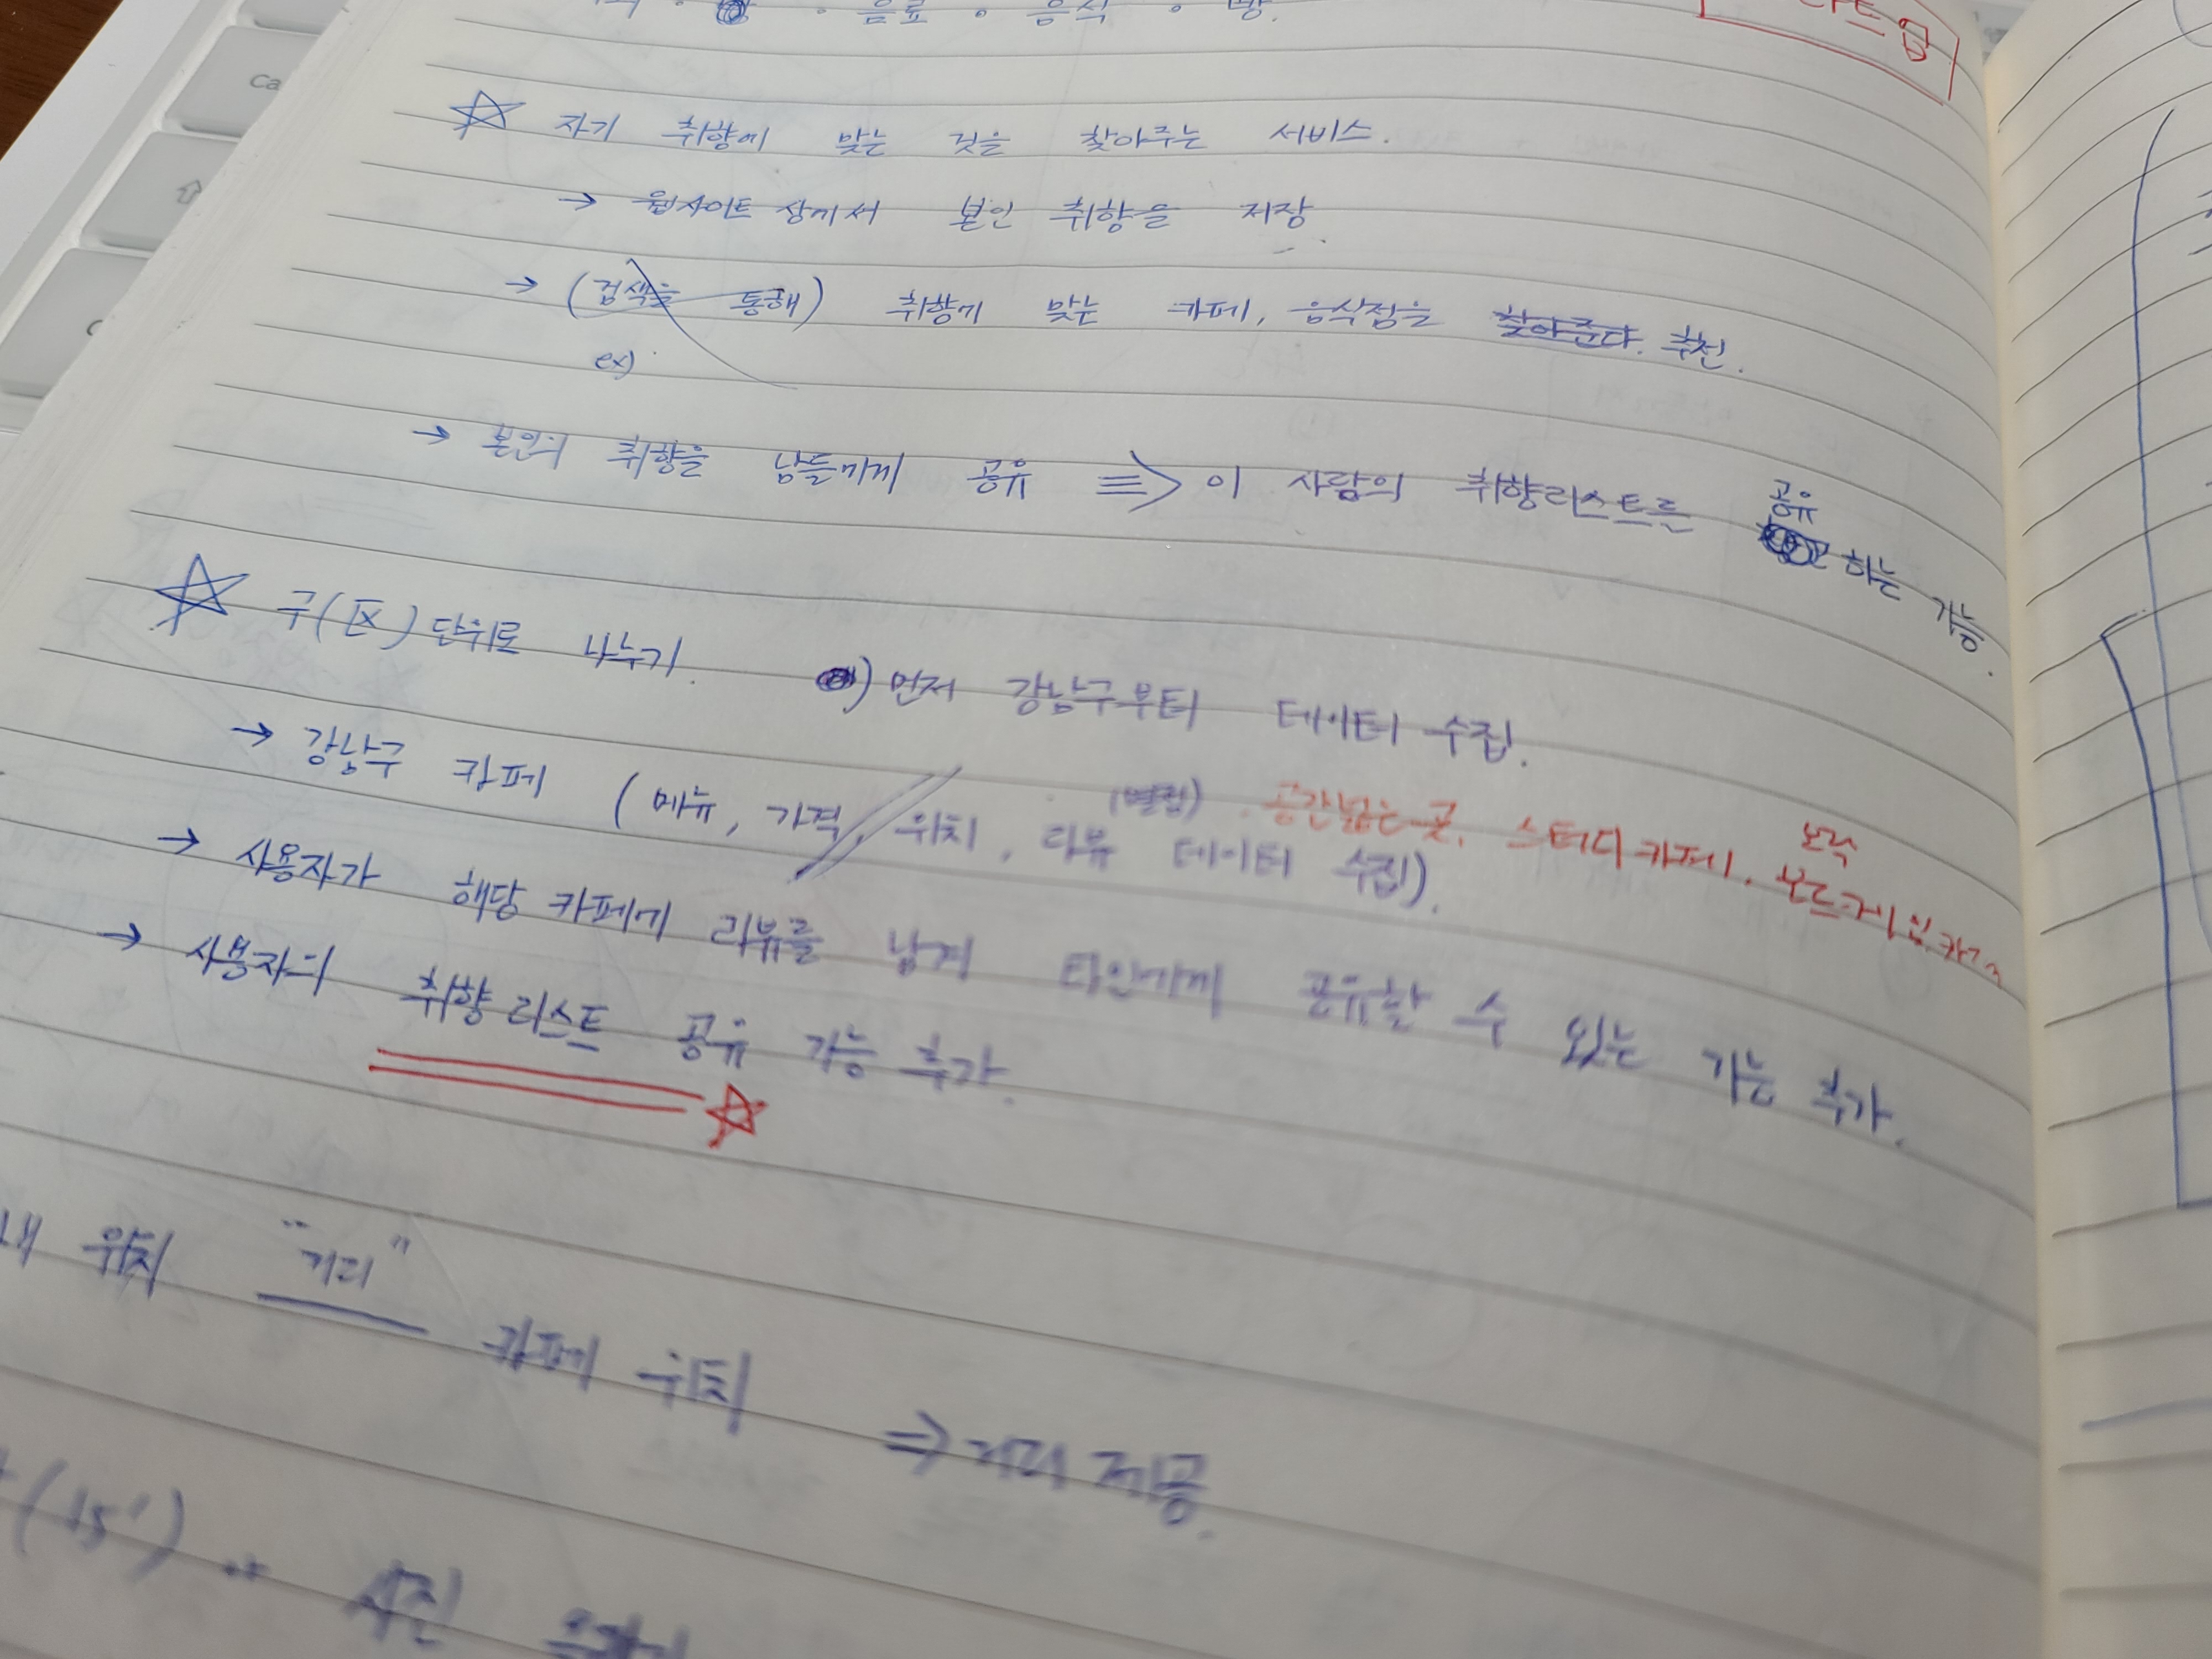 음료 · 음식 ·
☆ 자기 취향에 맞는 것을 찾아주는 서비스.
→ 웹사이트 상에서 본인 취향을 저장.
→ (검색을 통해) 취향에 맞는 카페, 음식점을 찾아준다. 추천.
ex)
→ 본인의 취향을 남들에게 공유 ⇒ 이 사람의 취향리스트를 공유 하는 기능.
☆ 구(区) 단위로 나누기. ) 먼저 강남구부터 데이터 수집.
→ 강남구 카페 (메뉴, 가격, 위치, 리뷰 데이터 수집).
(별점) · 공간넓은 곳. 스터디카페. 보드게임카페
→ 사용자가 해당 카페에 리뷰를 남겨 타인에게 공유할 수 있는 기능 추가.
→ 사용자의 취향리스트 공유 기능 추가.
내 위치 "거리" 카페 위치 ⇒ 거리 제공.
(15') 사진